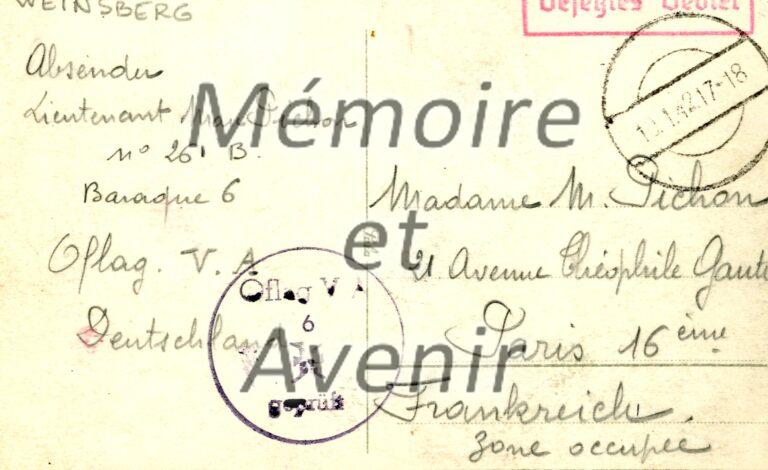 WEINSBERG
Absender
Lieutenant Pichon
n° 261 B.
Baraque 6
Oflag. V. A
Deutschland
Oflag V A
6
geprüft
Besetztes Gebiet
.1.42.17-18
Madame M. Pichon
21 Avenue Théophile Gautie
Paris 16 ème
Frankreich.
Zone occupée
Mémoire
et
Avenir